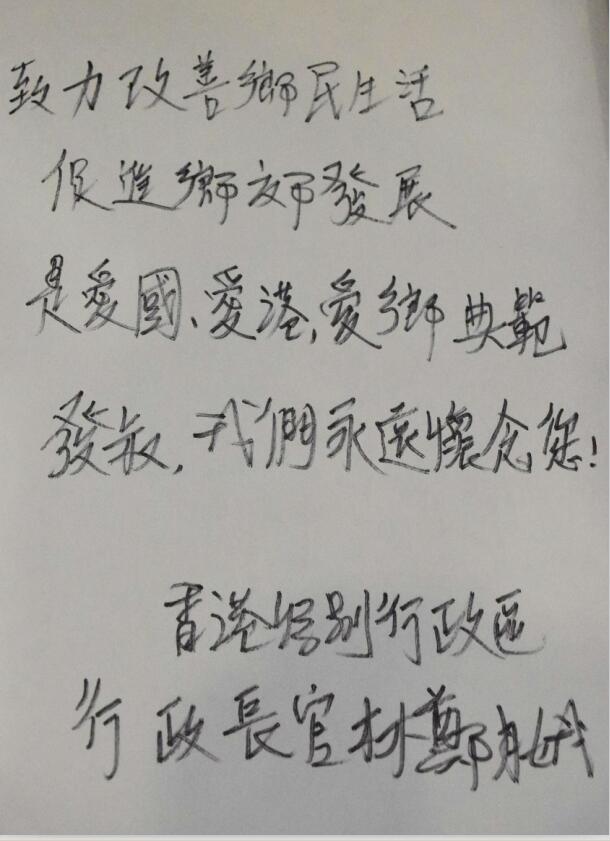 致力改善鄉民生活
促進鄉郊發展
是愛國、愛港、愛鄉典範
發叔，我們永遠懷念您！
香港特別行政區
行政長官林鄭月娥